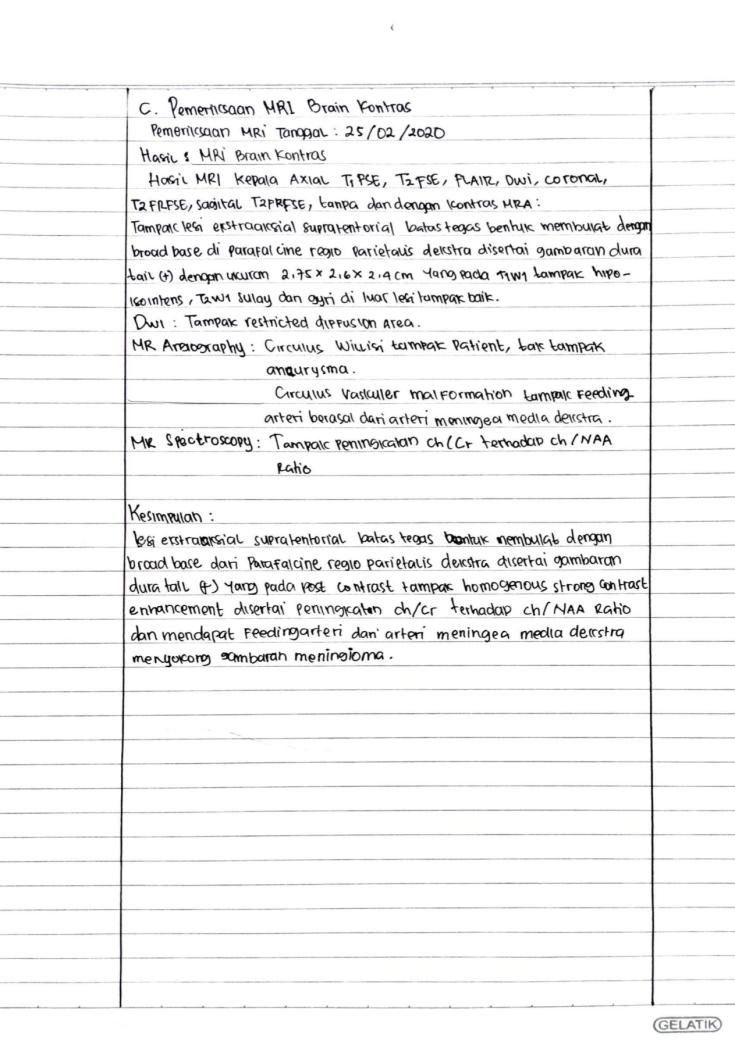 C. Pemeriksaan MRI Brain Kontras
Pemeriksaan MRi Tanggal : 25/02/2020
Hasil : MRi Brain Kontras
Hasil MRI Kepala Axial T1FSE, T2FSE, FLAIR, Dwi, coronal,
T2FRFSE, sagital T2FRFSE, tanpa dan dengan kontras MRA :
Tampak lesi ekstraaksial supratentorial batas tegas bentuk membulat dengan
broad base di parafalcine regio parietalis dekstra disertai gambaran dura
tail (+) dengan ukuran 2.75 x 2,6 x 2.4 cm yang pada T1W1 tampak hipo-
isointens, T2W1 sulay dan gyri di luar lesi tampak baik.
DWI : Tampak restricted diffusion Area.
MR Areiography : Circulus Willisi tampak Patient, tak tampak
aneurysma.
Circulus Vaskuler malformation tampak Feeding
arteri berasal dari arteri meningea media dekstra.
MR Spectroscopy : Tampak peningkatan ch/Cr terhadap ch/NAA
Ratio
Kesimpulan :
lesi ekstraaksial supratentorial batas tegas bentuk membulat dengan
broad base dari Parafalcine regio parietalis dekstra disertai gambaran
dura tail (+) yang pada post contrast tampak homogenous strong contrast
enhancement disertai peningkatan ch/cr terhadap ch/NAA Ratio
dan mendapat Feedingarteri dari arteri meningea media dekstra
menyokong gambaran meningioma.
GELATIK